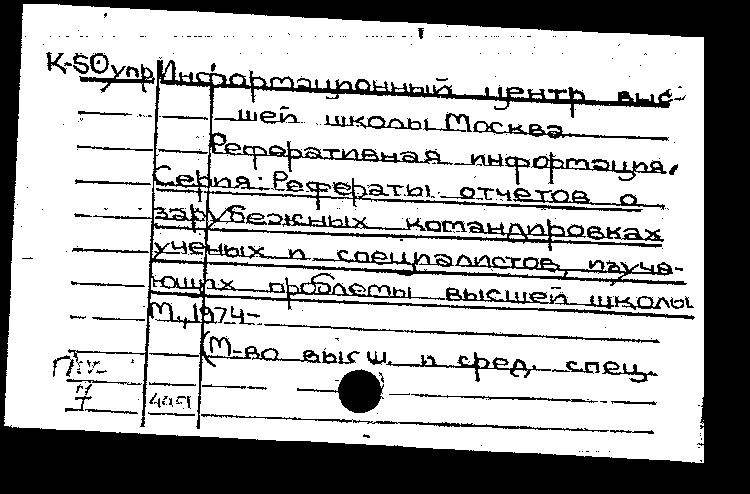 К-50упр Информационный центр выс-
шей школы Москва
Реферативная информация.
Серия: Рефераты отчетов о
зарубежных командировках
ученых и специалистов, изуча-
ющих проблемы высшей школы
М., 1974-
(М-во высш. и сред. спец.
7